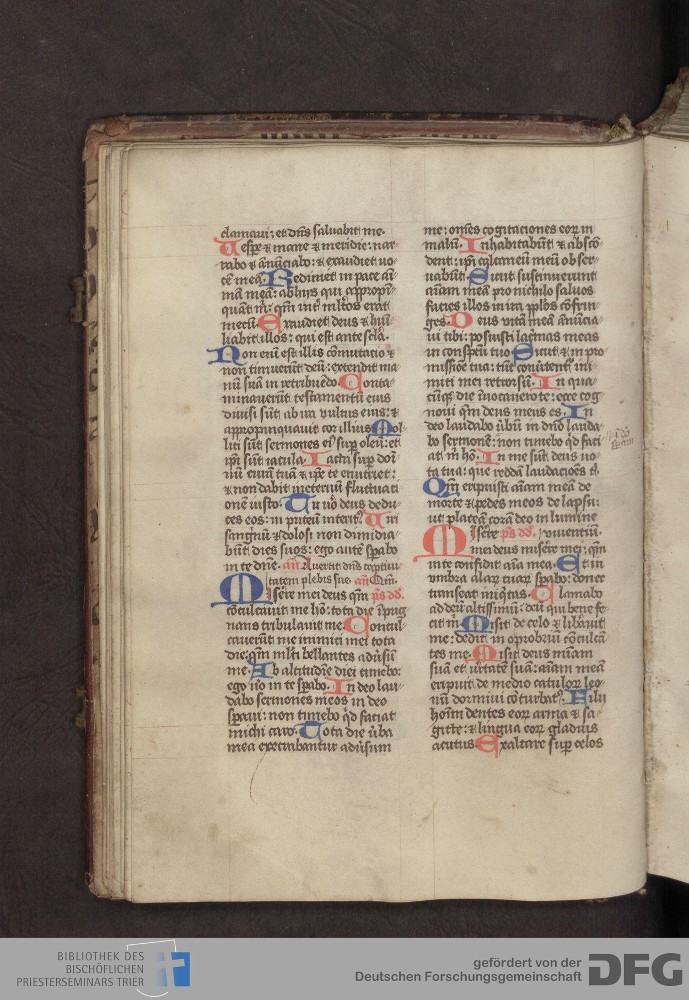 clamaui: et dn̄s saluabit me.
Uespe & mane & meridie: nar-
rabo & ānūciabo: & exaudiet uo-
cē meā. Redimet in pace aī-
mā meā: ab hijs qui appropī-
quāt m̄: qm̄ int̄ ml̄tos erāt
mecū. Exaudiet deus & hūi-
liabit illos: qui est ante scl̄a.
Non enī est illis cōmutatio &
non timuerūt deū: extendit ma
nū suā in retribuēdo. Conta-
minauerūt testamentū eius
diuisi sūt ab ira uultus eius: &
appropinquauit cor illius. Mol-
liti sūt sermones ei᷒ sup̄ oleū: et
ip̄i sūt iacula. Iacta sup̄ doī-
nū curam tuā & ip̄e te enutriet:
& non dabit ineternū fluctuati
onē iusto. Tu uo deus dedu-
ces eos: in puteū interit᷒. Uiri
sanguinū & dolosi non dimidia-
būt dies suos: ego autē sp̄abo
in te dn̄e. an̄ Auertit dn̄s captiui-
tatem plebis sue. an̄ Qm̄.
Misere mei deus qm̄ ps̄ dd̄.
cōculcauit me hō: tota die īpug
nans tribulauit me. Concul-
cauerūt me inimici mei tota
die: qm̄ ml̄ti bellantes adūsū
me. Ab altitudīe diei timebo:
ego uo in te sp̄abo. In deo lau-
dabo sermones meos in deo
sp̄aui: non timebo qd̄ faciat
michi caro. Tota die ūba
mea execrabantur adūsum
me: om̄es cogitaciones eoꝝ in
malū. Inhabitabūt & abscō-
dent: ip̄i calcaneū meū obser-
uabūt. Sicut sustinuerunt
aīam meā pro nichilo saluos
facies illos in ira pp̄los cōfrin-
ges. Deus uitā meā anūcia-
ui tibi: posuisti lac̄mas meas
in conspcū tuo Sicut & in pro
missiōe tua: tūc cōuertent᷒ ini
mici mei retrorsū. In qua
cūqꝫ die īuocauero te: ecce cog
noui qm̄ deus meus es. In
deo laudabo ūbū in dn̄o lauda-
bo sermonē: non timebo qd̄ faci
at m̄ hō. In me sūt deus uo-
ta tua: que reddā laudacōes t̄.
Qm̄ eripuisti aīam meā de
morte & pedes meos de lapsu:
ut placeā corā deo in lumine
Misere ps̄ dd̄. uiuentiū.
mei deus misere mei: qm̄
in te confidit aīa mea. Et in
umbra alaꝝ tuaꝝ sp̄abo: donec
transeat iniq̄tas. Clamabo
ad deū altissimū: deū qui bene fe-
cit m̄. Misit de celo & libāuit
me: dedit in oprobriū cōculcā
tes me. Misit deus mīam
suā et ūitatē suā: aīam meā
eripuit de medio catuloꝝ leo-
nū dormiui cōturbat᷒. Filij
hoīm dentes eoꝝ arma & sa-
gitte: & lingua eoꝝ gladius
acutus Exaltare sup̄ celos
BIBLIOTHEK DES
BISCHÖFLICHEN
PRIESTERSEMINARS TRIER
gefördert von der
Deutschen Forschungsgemeinschaft DFG